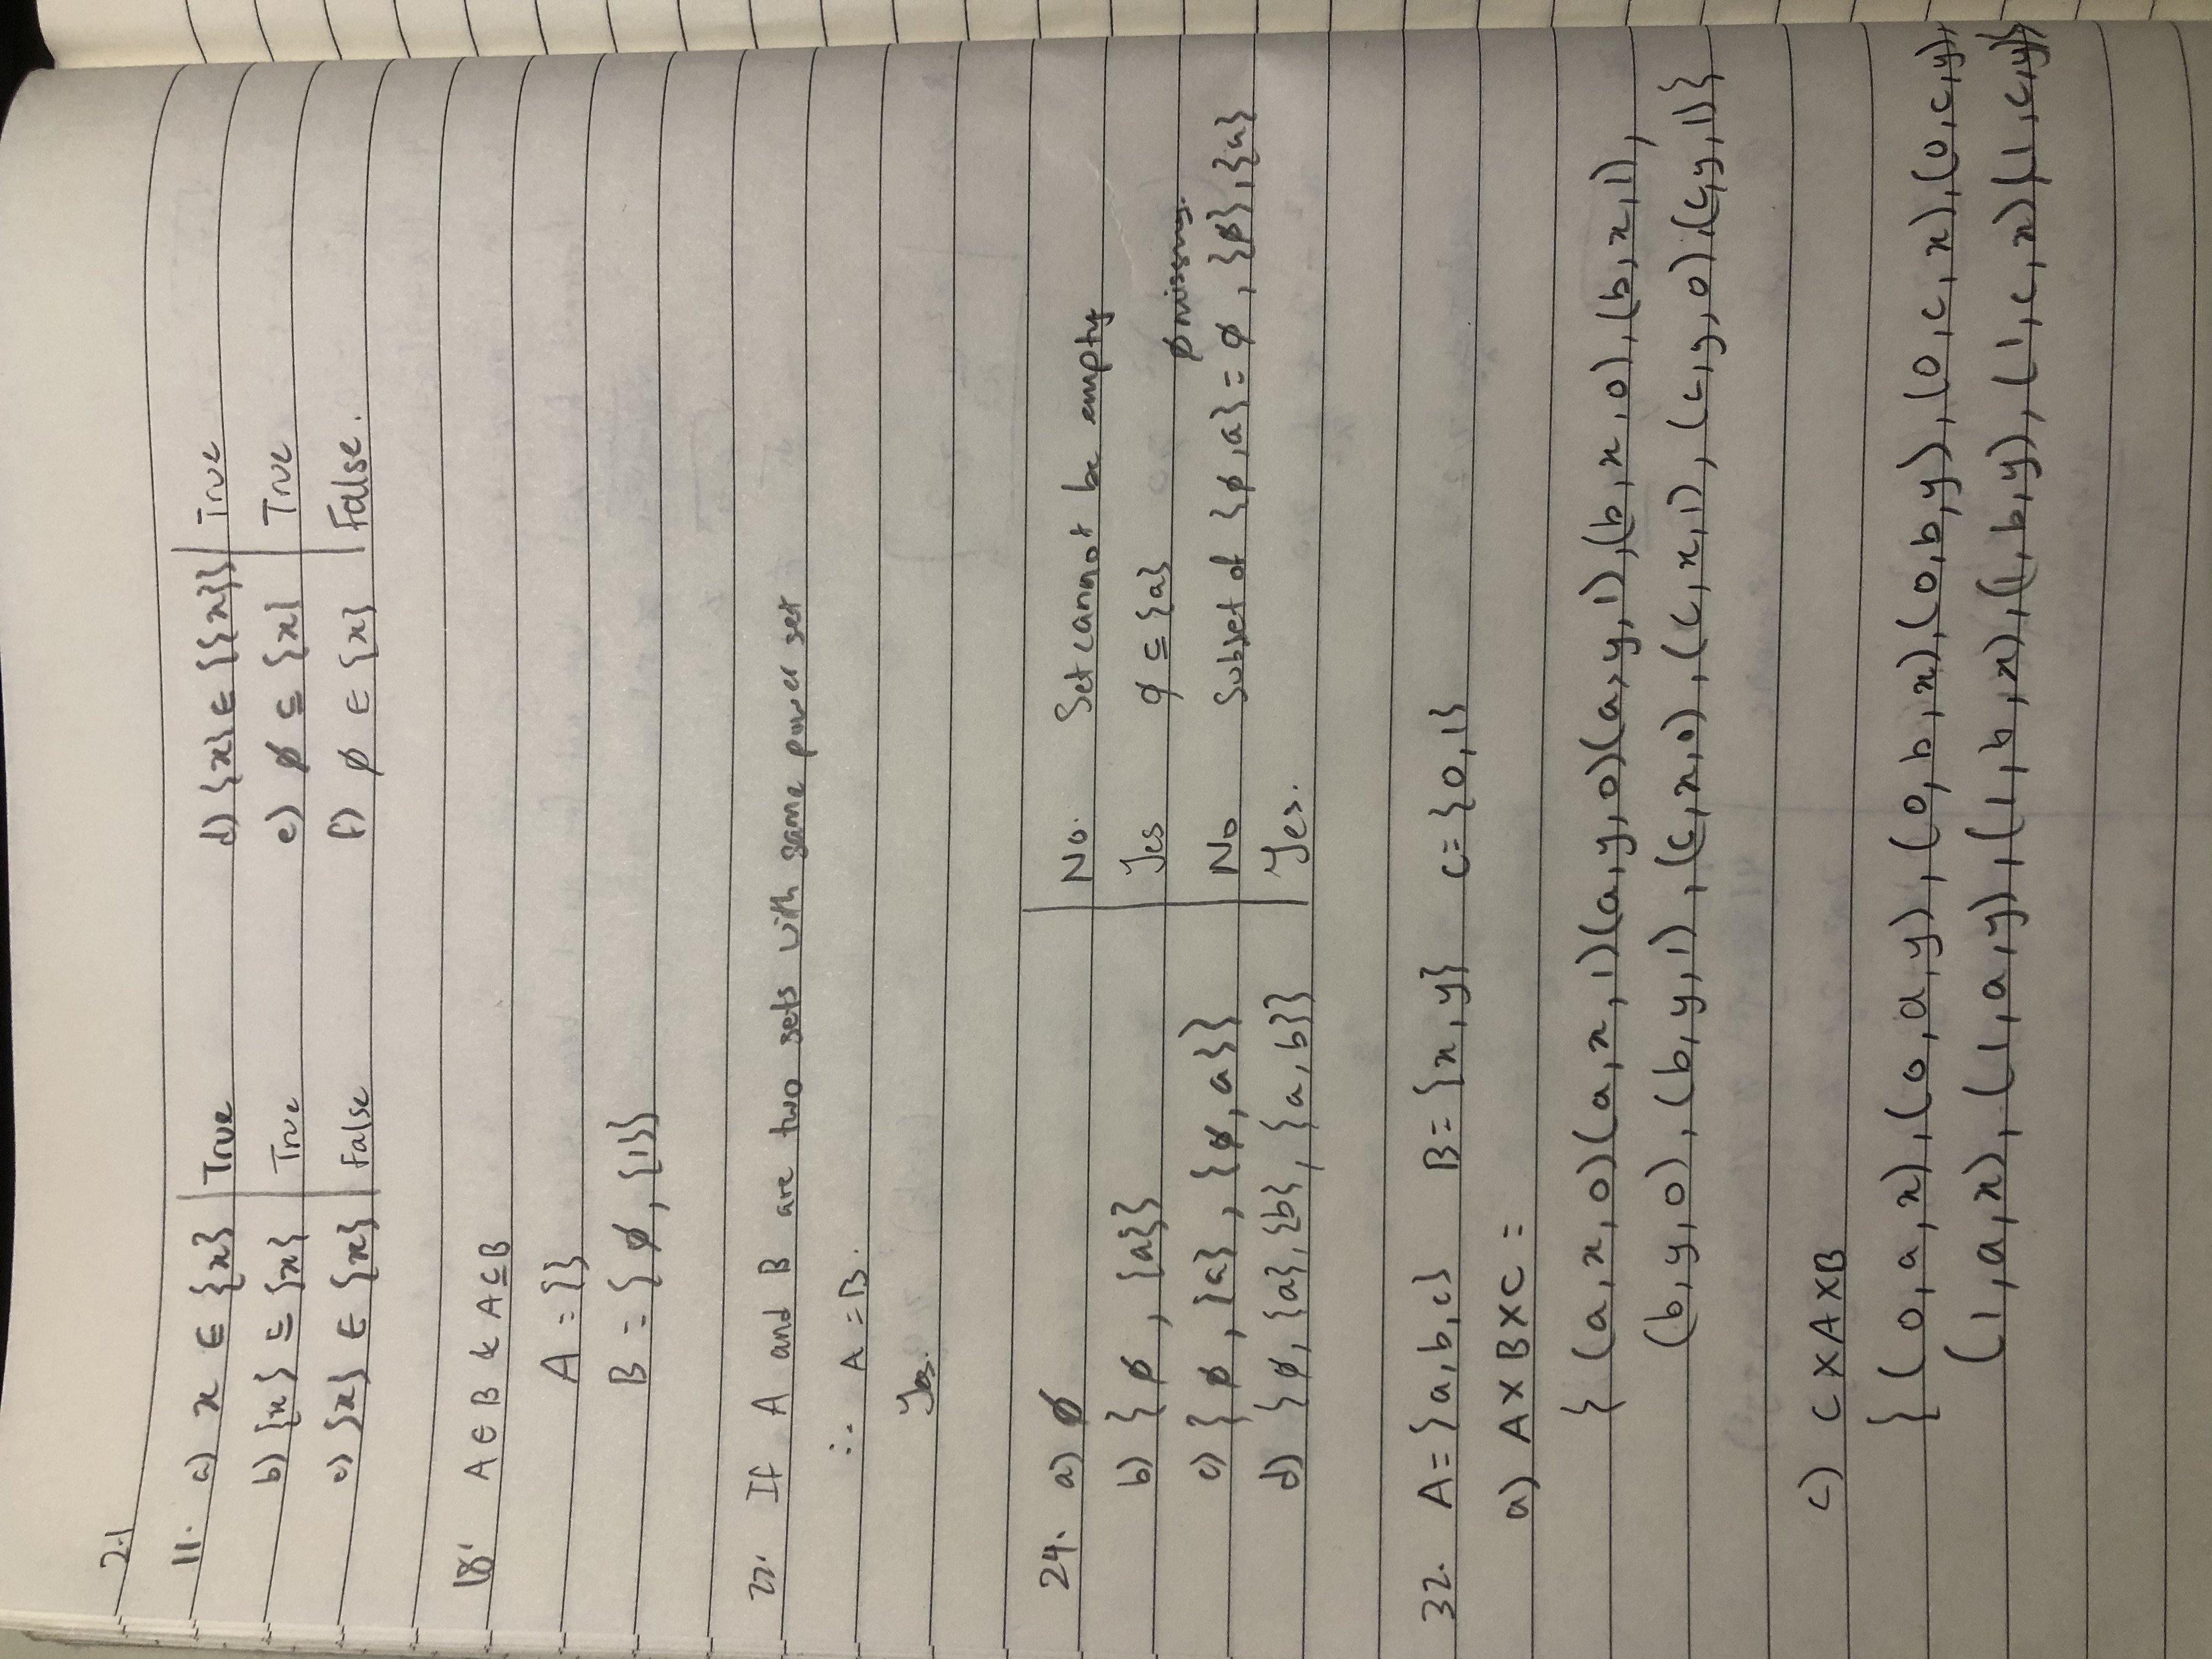 2.1
11. a) x ∈ {x} | True d) {x} ∈ {{x}} | True
b) {x} ⊆ {x} | True e) ∅ ⊆ {x} | True
c) {x} ∈ {x} | False f) ∅ ∈ {x} | False.
18. A ∈ B & A ⊆ B
A = {}
B = {∅, {1}}
22. If A and B are two sets with same power set
∴ A = B.
Yes.
24. a) ∅ | No. Set cannot be empty
b) {∅, {a}} | Yes ∅ ⊆ {a}
∅ missing.
c) {∅, {a}, {∅, a}} | No Subset of {∅, a} = ∅, {∅}, {a}
d) {∅, {a}, {b}, {a, b}} | Yes.
32. A = {a, b, c} B = {x, y} C = {0, 1}
a) A × B × C =
{ (a, x, 0) (a, x, 1) (a, y, 0) (a, y, 1), (b, x, 0), (b, x, 1),
(b, y, 0), (b, y, 1), (c, x, 0), (c, x, 1), (c, y, 0), (c, y, 1) }
c) C × A × B
{ (0, a, x), (0, a, y), (0, b, x), (0, b, y), (0, c, x), (0, c, y),
(1, a, x), (1, a, y), (1, b, x), (1, b, y), (1, c, x) (1, c, y) }